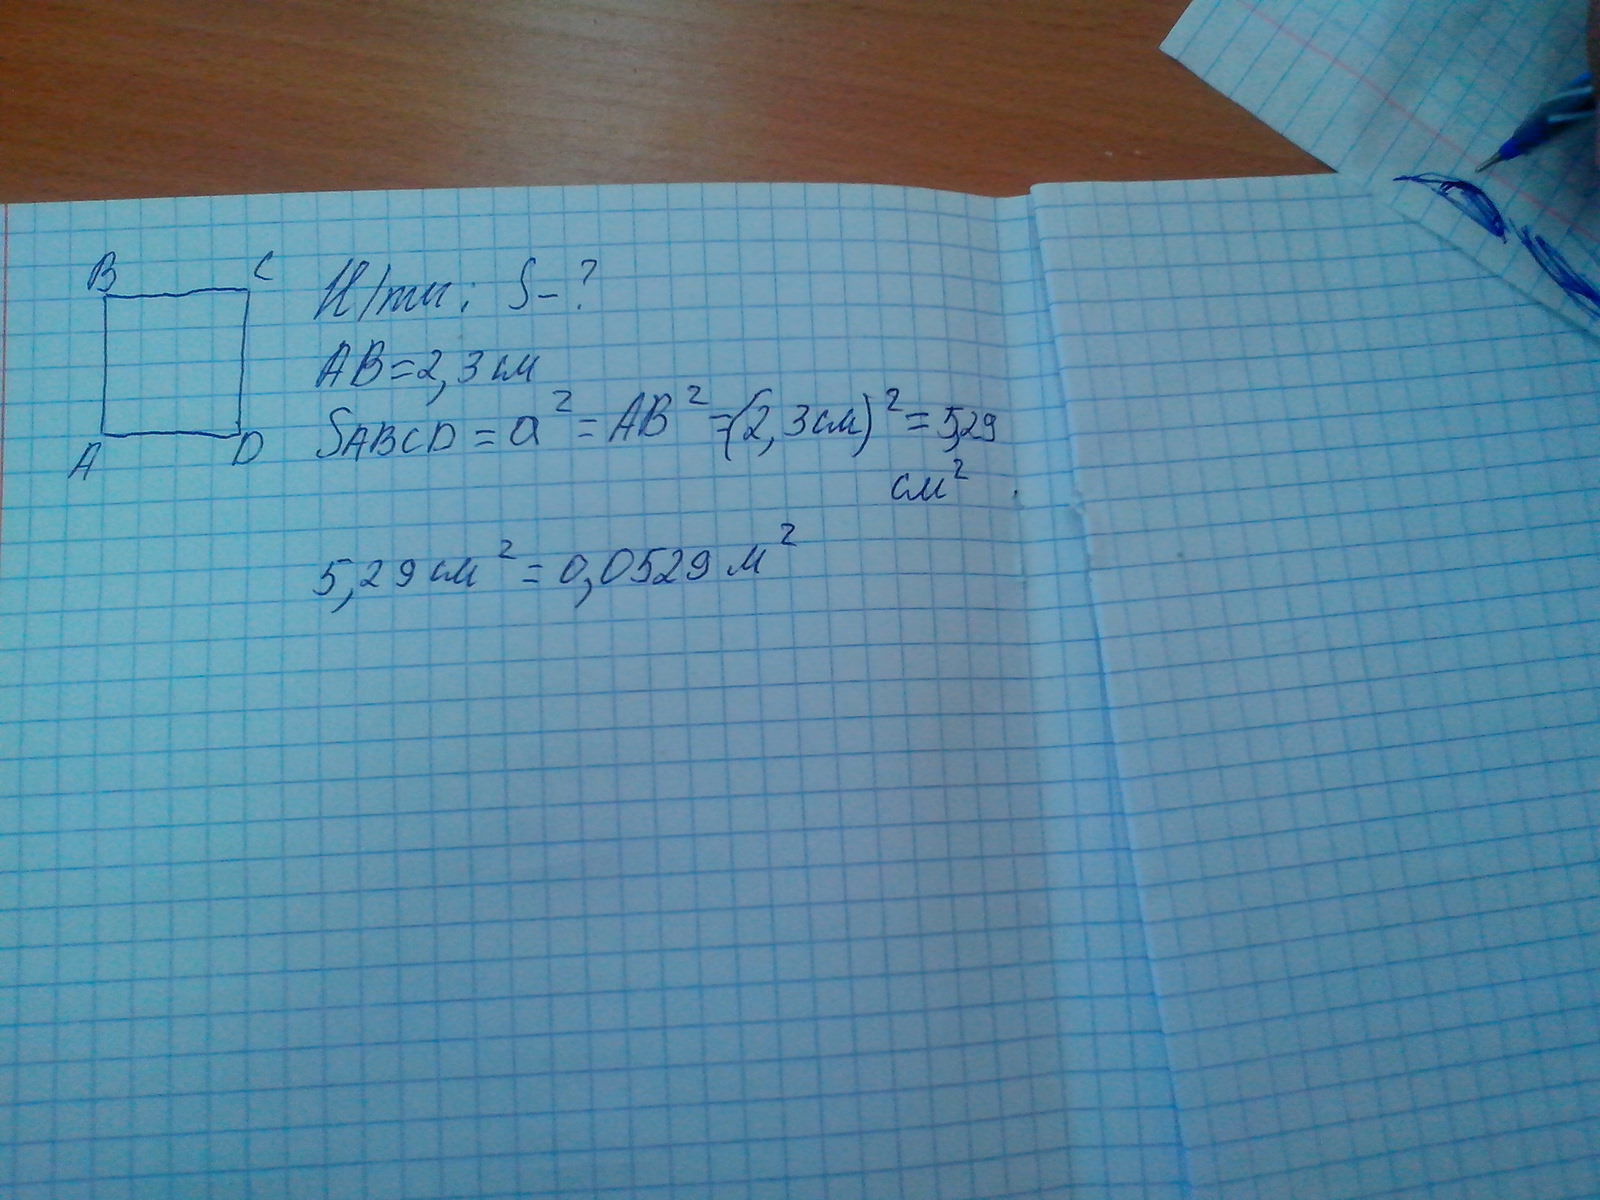 B C
A D
Н/ти: S-?
AB=2,3 см
SABCD = a² = AB² = (2,3 см)² = 5,29
см²
5,29 см² = 0,0529 м²